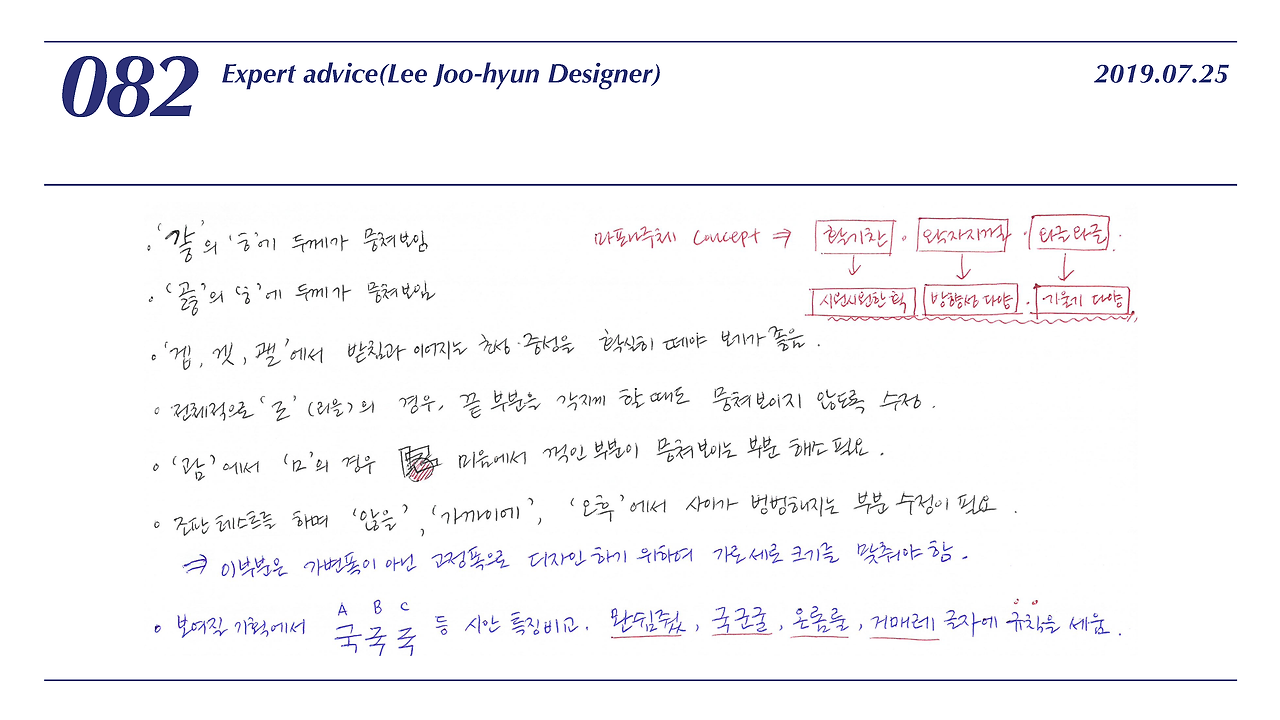 082
Expert advice(Lee Joo-hyun Designer)
2019.07.25
마파대주체 concept ⇒ 활기찬 · 왁자지껄 · 와글와글 ·
↓ ↓ ↓
시원시원한 획 방향성 다양 · 기울기 다양
• '갏'의 'ㅎ'에 두께가 뭉쳐보임
• '곯'의 'ㅎ'에 두께가 뭉쳐보임
• '겝, 겟, 괠'에서 받침과 이어지는 초성·중성을 확실히 떼야 보기가 좋음.
• 전체적으로 'ㄹ'(리을)의 경우, 끝 부분을 각지게 할때도 뭉쳐보이지 않도록 수정.
• '괌'에서 'ㅁ'의 경우 미음에서 꺾인 부분이 뭉쳐보이는 부분 해소 필요.
• 조판 테스트를 하며 '않을', '가까이에', '오후'에서 사이가 벙벙해지는 부분 수정이 필요.
⇒ 이부분은 가변폭이 아닌 고정폭으로 디자인 하기 위하여 가로세로 크기를 맞춰야 함.
A B C
• 보여질 기획에서 국국국 등 시안 특징비교. 쉼줬, 국군굴, 온롬를, 거매레 글자에 규칙을 세움.